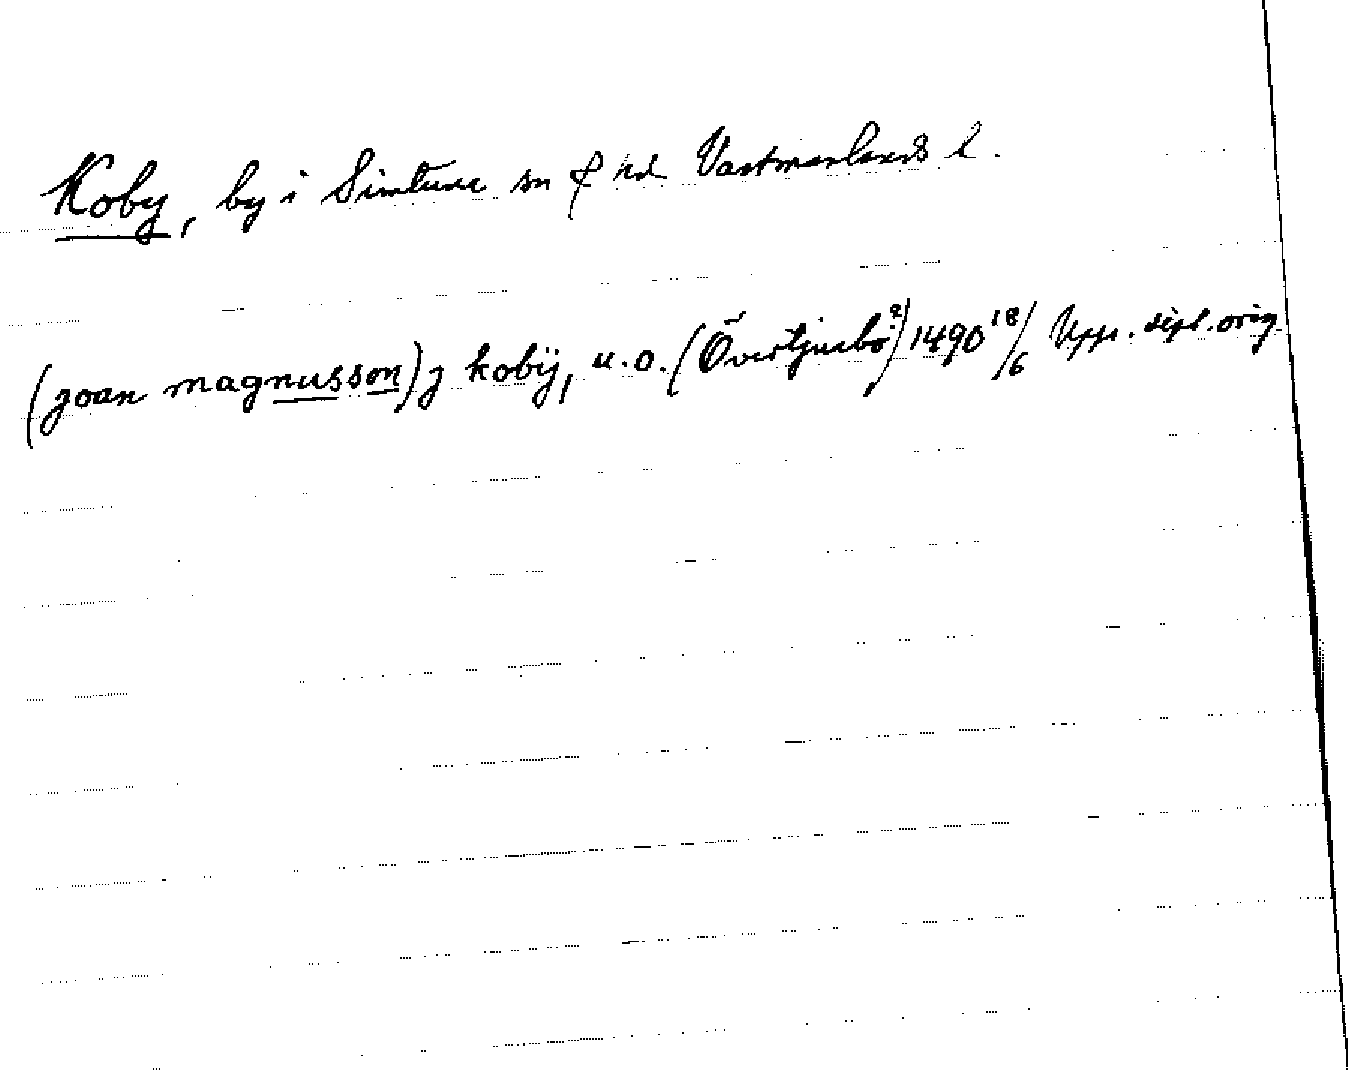 Koby, by i Simtuna sn & hd Västmanlands l.
(joan magnusson) j kobÿ, u.o. (Övertjurbo?) 1490 18/6 Upps. dipl. orig